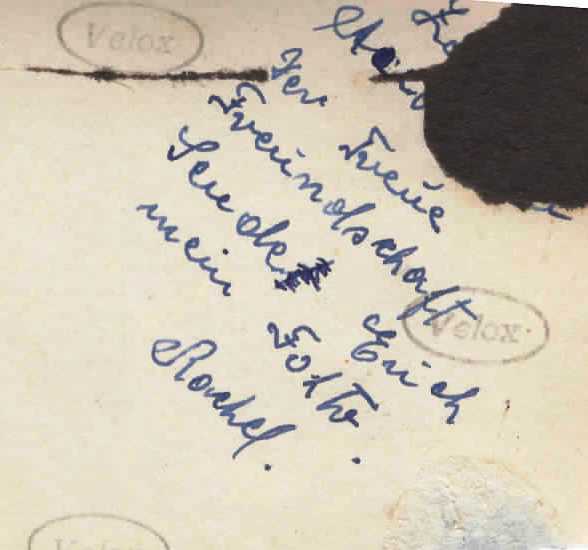 Velox
der Treue
Freundschaft
Sende Erich
mein Fotho.
Rachel.
Velox
Velox